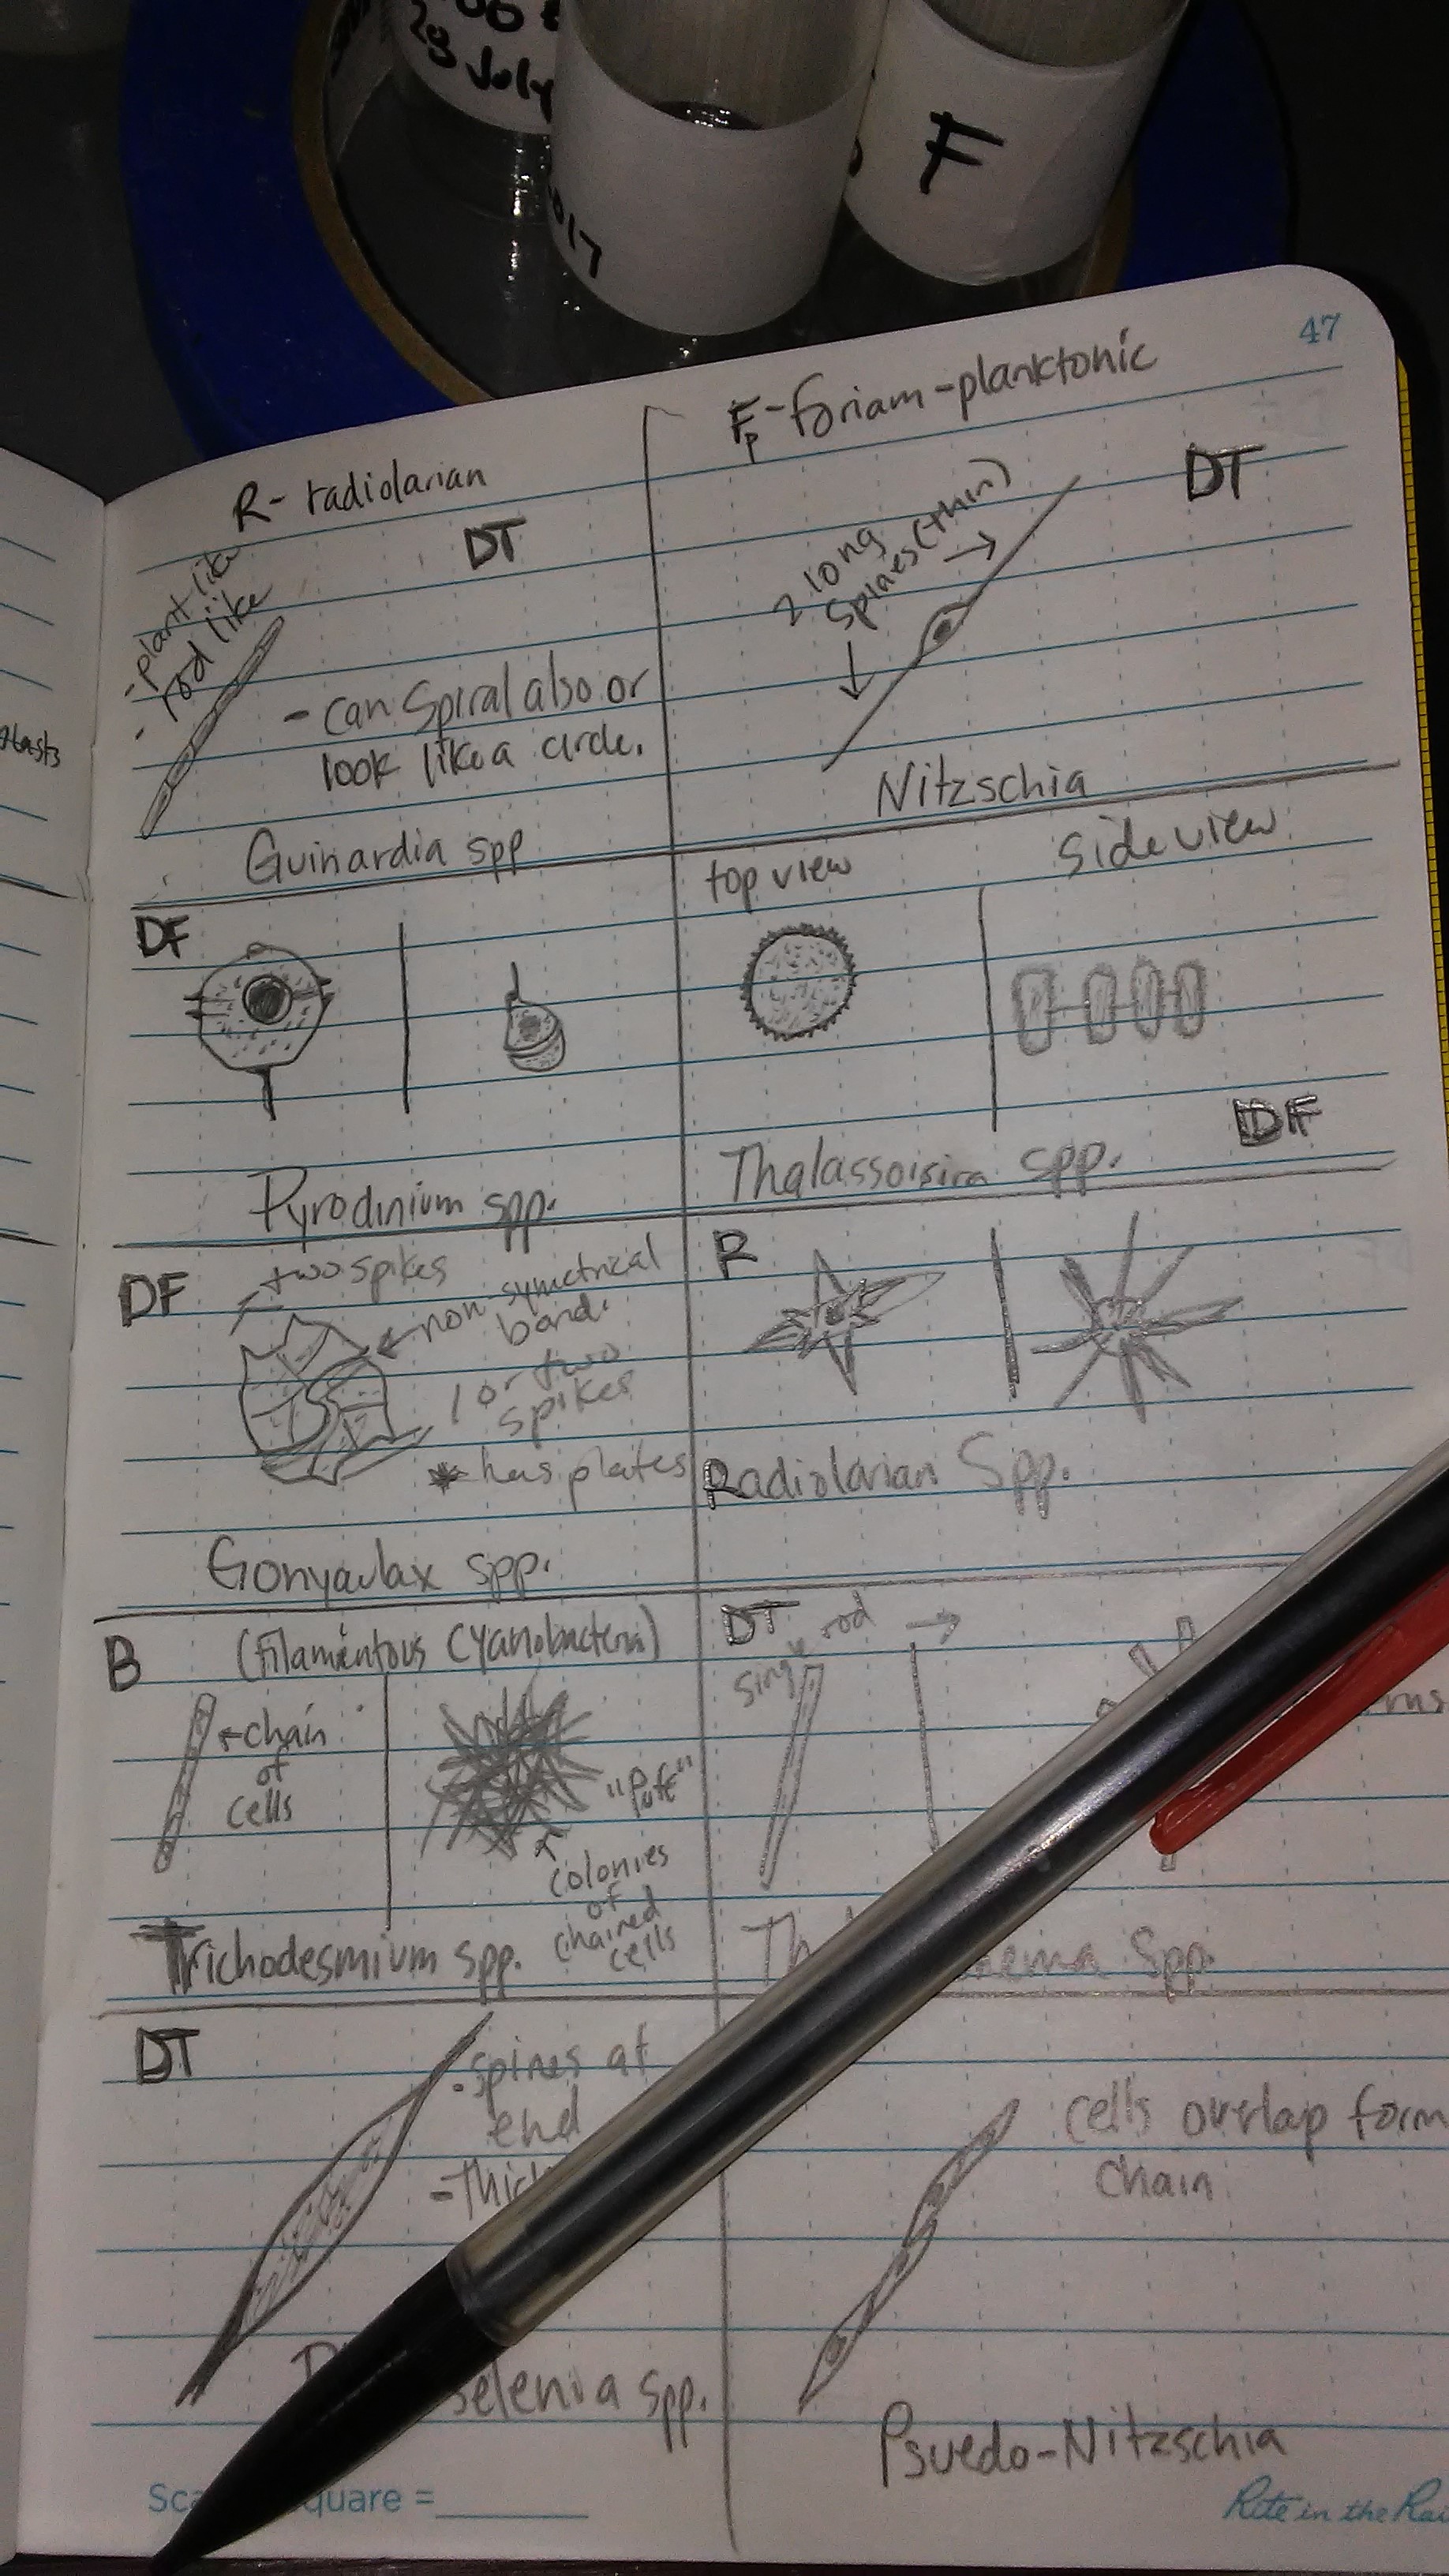 29 July
2017
F
47
R- radiolarian
Fp-foriam-planktonic
DT
-plant like
- rod like
- can Spiral also or
look like a circle.
Guinardia spp
DT
2 long
Spines (thin)
Nitzschia
DF
Pyrodinium spp.
top view
Side view
DF
Thalassoisira spp.
DF
two spikes
non-symetrical
band.
1 or two
spikes
* has plates
Gonyaulax spp.
R
Radiolarian Spp.
B
(Filamentous Cyanobacteria)
chain
of
cells
"Puff"
colonies
of
chained
cells
Trichodesmium spp.
DT
single rod
Spp.
DT
- spines at
end
selenia spp.
cells overlap form
chain
Psuedo-Nitzschia
Square =
Rite in the